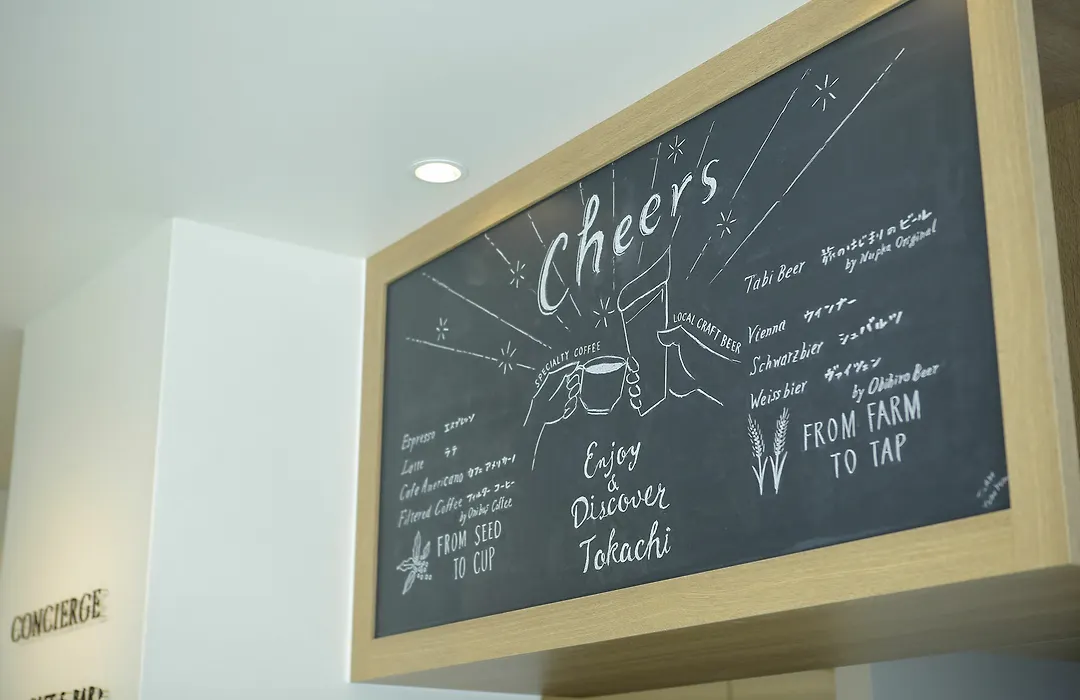 Cheers
SPECIALTY COFFEE
LOCAL CRAFT BEER
Espresso エスプレッソ
Latte ラテ
Cafe Americano カフェアメリカーノ
Filtered Coffee フィルターコーヒー
by Onibus Coffee
FROM SEED
TO CUP
Enjoy
&
Discover
Tokachi
Tabi Beer 旅のはじまりのビール
by Nupka Original
Vienna ウインナー
Schwarzbier シュバルツ
Weissbier ヴァイツェン
by Obihiro Beer
FROM FARM
TO TAP
CONCIERGE
& BAR